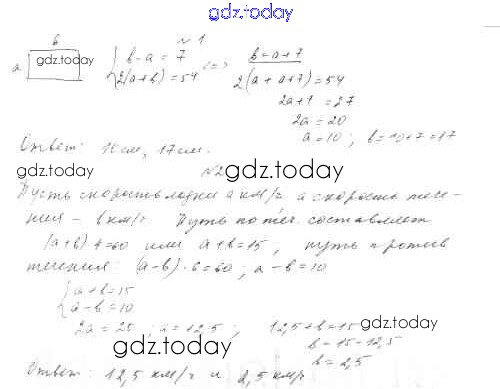 gdz.today
№1
в
а gdz.today
{в - а = 7
2(а+в) = 54 <=>
в = а + 7
2(а + а+7) = 54
2а+7 = 27
2а = 20
а = 10 ; в = 10+7 = 17
Ответ: 10 см, 17 см.
№2
gdz.today gdz.today
Пусть скорость лодки а км/ч а скорость тече-
ния - в км/ч Путь по теч. составляет
(а+в)·4=60 или а+в=15, путь против
течения: (а-в)·6=60; а-в=10
{а+в=15
а-в=10
2а = 25 ; а = 12,5 ; 12,5+в=15
в = 15-12,5
в = 2,5
gdz.today gdz.today
Ответ: 12,5 км/ч и 2,5 км/ч